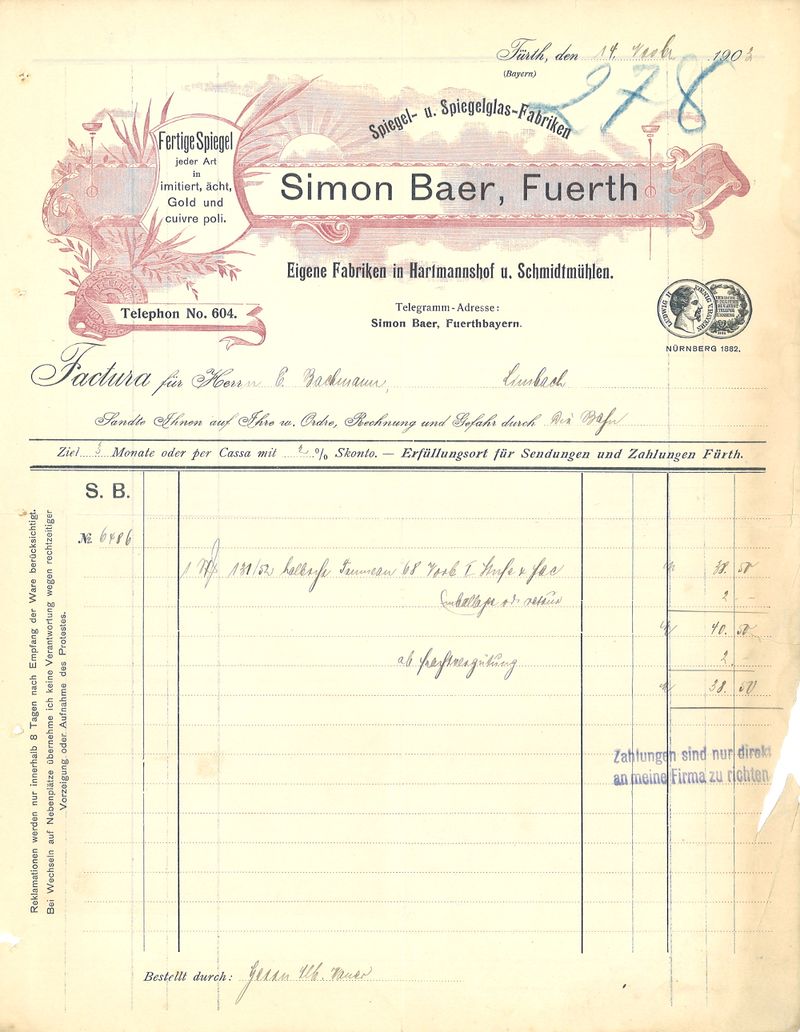 Fürth, den 14. Novbr 1903
(Bayern)
278
Spiegel- u. Spiegelglas-Fabriken
Fertige Spiegel
jeder Art
in
imitiert, ächt,
Gold und
cuivre poli.
Simon Baer, Fuerth
Eigene Fabriken in Hartmannshof u. Schmidtmühlen.
Telephon No. 604.
Telegramm-Adresse:
Simon Baer, Fuerthbayern.
LUDWIG II KOENIG V. BAYERN
NÜRNBERG 1882.
Factura für Herrn C. Bachmann, Limbach
Sandte Ihnen auf Ihre w. Ordre, Rechnung und Gefahr durch die Bahn
Ziel 3 Monate oder per Cassa mit 2 % Skonto. — Erfüllungsort für Sendungen und Zahlungen Fürth.
S. B.
№ 6486
1 131/52 68 I 38. 50
Emballage 2 -
40. 50
ab Frachtvergütung 2. -
38. 50
Zahlungen sind nur direkt
an meine Firma zu richten
Reklamationen werden nur innerhalb 8 Tagen nach Empfang der Ware berücksichtigt.
Bei Wechseln auf Nebenplätze übernehme ich keine Verantwortung wegen rechtzeitiger
Vorzeigung oder Aufnahme des Protestes.
Bestellt durch: Herrn